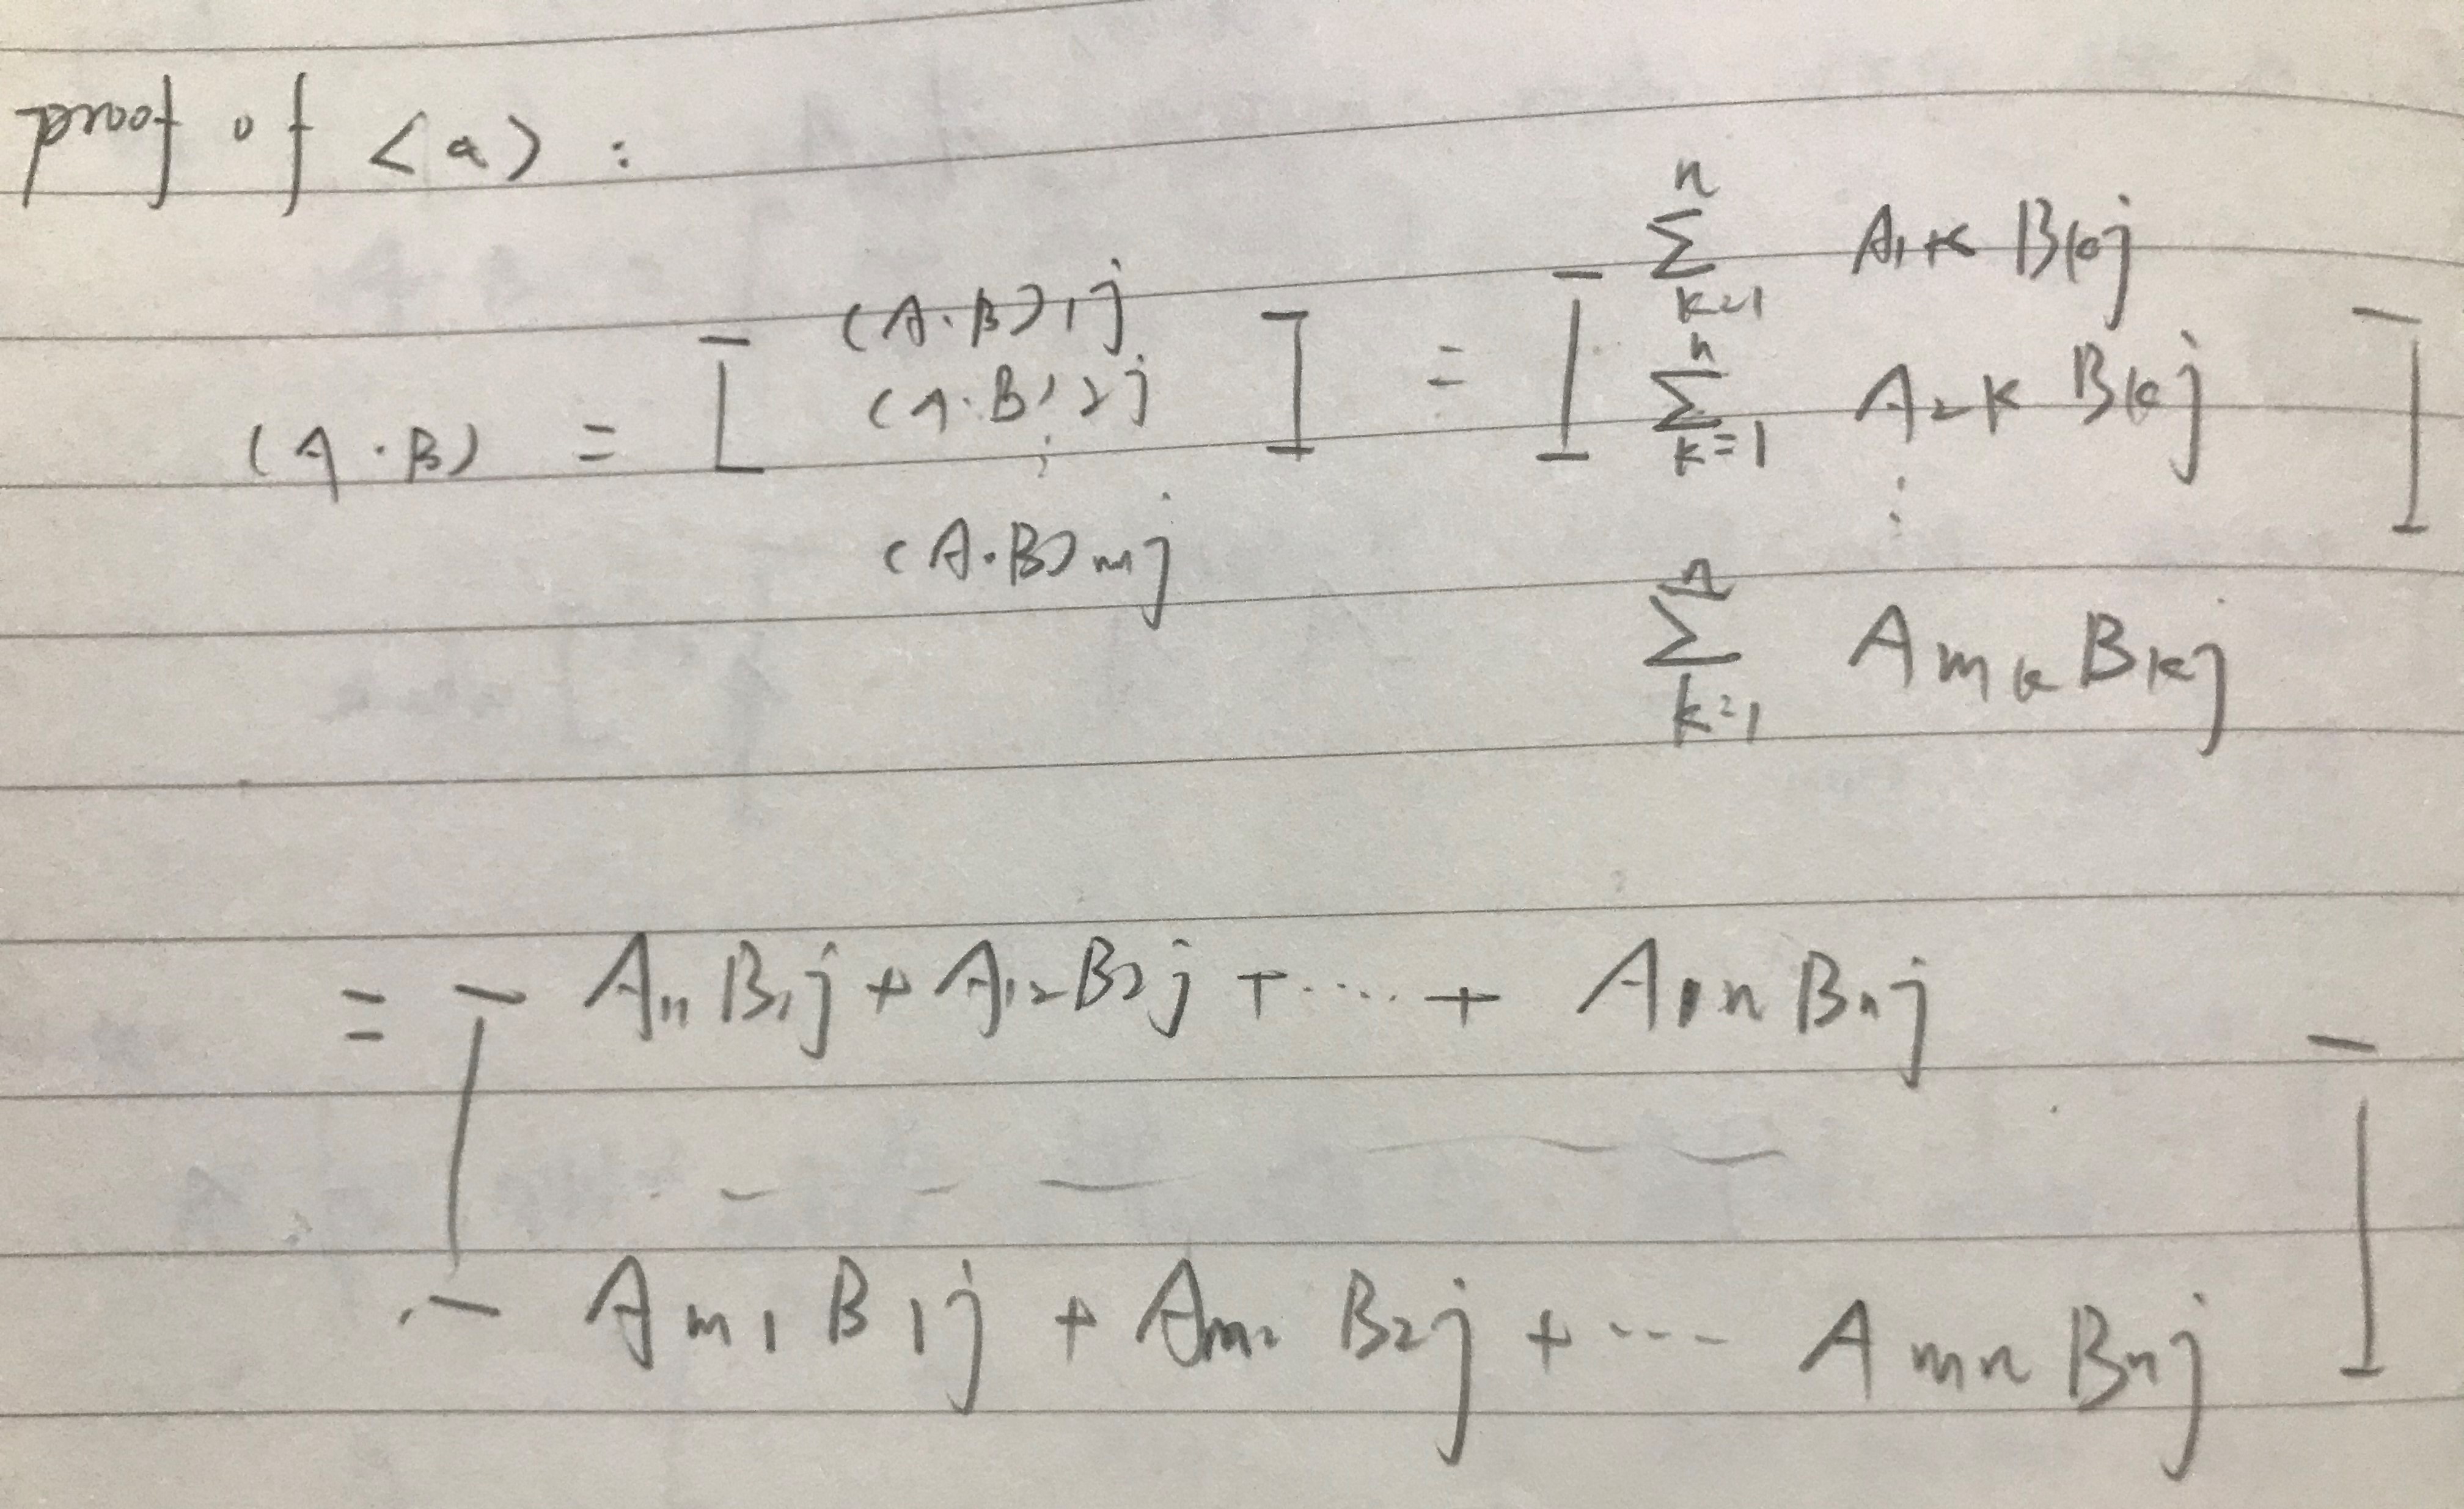 proof of <a> :
(A·B) = [ (A·B)1j (A·B)2j ⋮ (A·B)mj ] = [ ∑_{k=1}^{n} A1k Bkj ∑_{k=1}^{n} A2k Bkj ⋮ ∑_{k=1}^{n} Amk Bkj ]
= [ A11 B1j + A12 B2j + ····· + A1n Bnj
Am1 B1j + Am2 B2j + ··· Amn Bnj ]